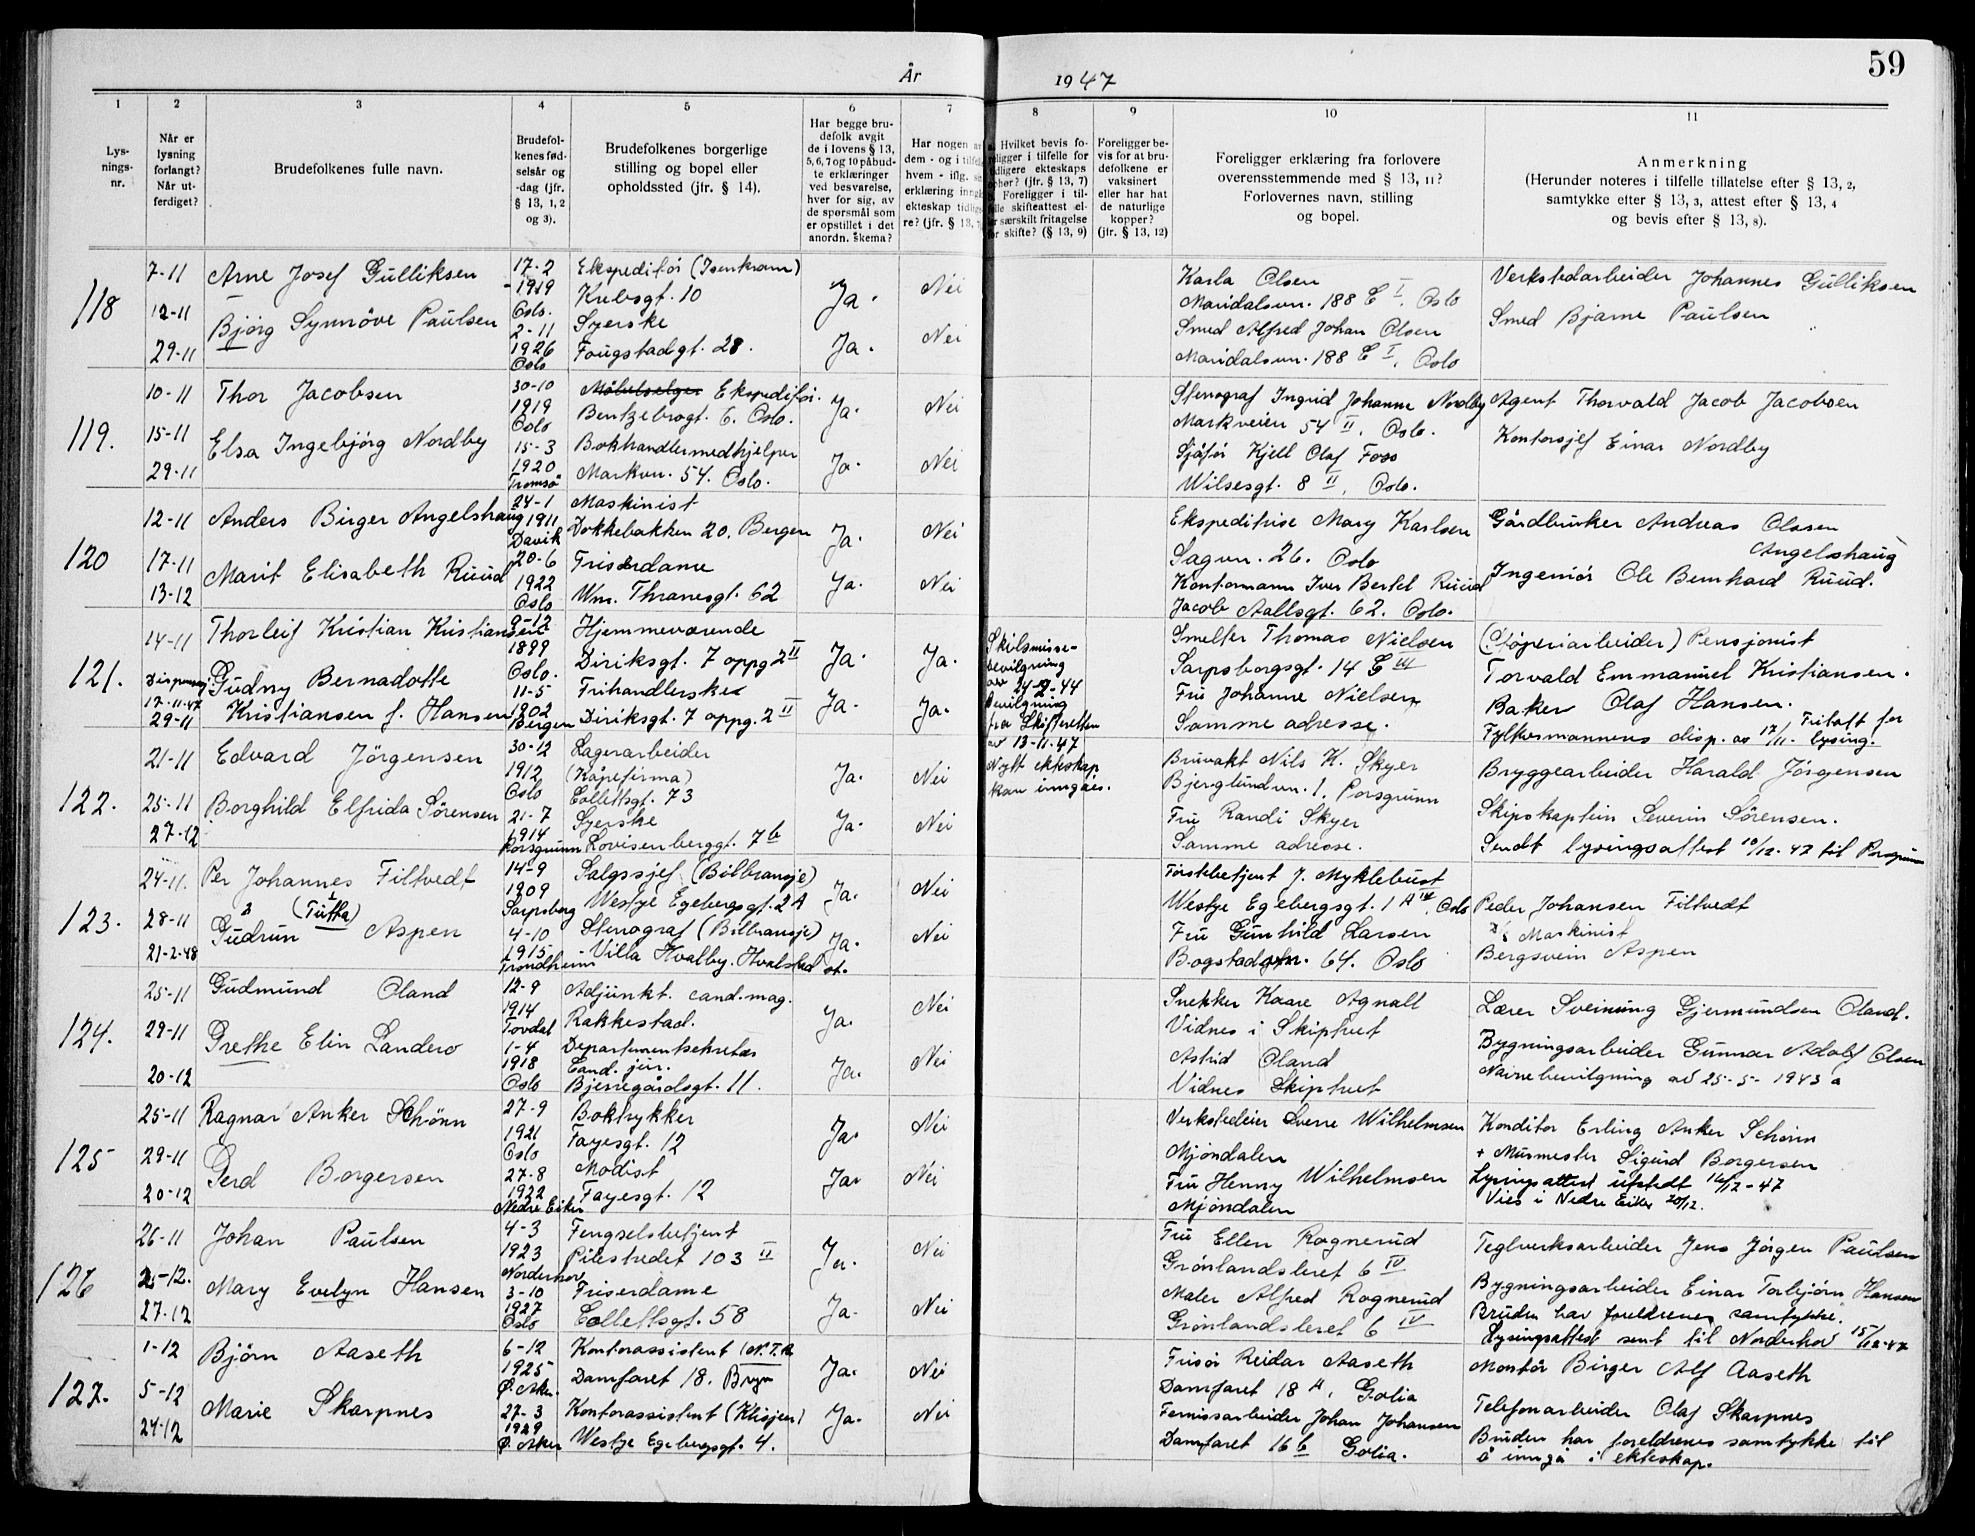 År 1947
59
1 2 3 4 5 6 7 8 9 10 11
Lys-
nings-
nr.
Når er
lysning
forlangt?
Når ut-
ferdiget?
Brudefolkenes fulle navn.
Brudefol-
kenes fød-
selsår og
-dag (jfr.
§ 13, 1, 2
og 3).
Brudefolkenes borgerlige
stilling og bopel eller
opholdssted (jfr. § 14).
Har begge bru-
defolk avgit
de i lovens § 13,
5, 6, 7 og 10 påbud-
te erklæringer
ved besvarelse,
hver for sig, av
de spørsmål som
er opstillet i det
anordn. skema?
Har nogen av
dem - og i tilfelle
hvem - iflg. sin
erklæring inngått
ekteskap tidlige-
re? (jfr. § 13, 7)
a. Hvilket bevis fo-
religger i tilfelle for
tidligere ekteskaps
ophør? (jfr. § 13, 7)
b. Foreligger i til-
felle skifteattest el-
ler særskilt fritagelse
for skifte? (§ 13, 9)
Foreligger be-
vis for at bru-
defolkene er
vaksinert
eller har hat
de naturlige
kopper?
(jfr. § 13, 12)
Foreligger erklæring fra forlovere
overensstemmende med § 13, 11?
Forlovernes navn, stilling
og bopel.
Anmerkning
(Herunder noteres i tilfelle tillatelse efter § 13, 2,
samtykke efter § 13, 3, attest efter § 13, 4
og bevis efter § 13, 8).
118
7-11
12-11
29-11
Arne Josef Gulliksen
Bjørg Synnöve Paulsen
17-2
-1919
Oslo.
2-11
1926
Oslo
Ekspeditör (Isenkram)
Krebsgt. 10
Syerske
Fougstadgt. 28.
Ja.
Ja.
Nei
Nei
Karla Olsen
Maridalsvn. 188 E I, Oslo
Smed Alfred Johan Olsen
Maridalsvn. 188 E I, Oslo
Verkstedarbeider Johannes Gulliksen
Smed Bjarne Paulsen
119.
10-11
15-11
29-11
Thor Jacobsen
Elsa Ingebjörg Nordby
30-10
1919
Oslo
15-3
1920
Tromsö
Möbelselger Ekspeditör.
Bentzebrogt. 6. Oslo.
Bokhandlermedhjelper
Markvn. 54. Oslo.
Ja.
Ja.
Nei
Nei
Stenograf Ingrid Johanne Nordby
Markveien 54 II, Oslo.
Sjåför Kjell Olaf Foss
Wilsesgt. 8 II, Oslo.
Agent Thorvald Jacob Jacobsen
Kontorsjef Einar Nordby
120
12-11
17-11
13-12
Anders Birger Angelshaug
Marit Elisabeth Ruud
24-1
1911
Davik
20-6
1922
Oslo
Maskinist
Dokkebakken 20. Bergen
Friserdame
Wm. Thranesgt. 62
Ja.
Ja.
Nei
Nei
Ekspeditrise Mary Karlsen
Sagvn. 26. Oslo
Kontormann Iver Bertel Ruud
Jacob Aallsgt. 62. Oslo.
Gårdbruker Andreas Olsen
Angelshaug
Ingeniör Ole Bernhard Ruud.
121.
14-11
17-11-47
29-11
Thorleif Kristian Kristiansen
Gudny Bernadotte
Kristiansen f. Hansen
9-12
1899
Oslo.
11-5
1902
Bergen
Hjemmeværende
Diriksgt. 7 oppg. 2 II
Frihandlerske
Diriksgt. 7 oppg. 2 II
Ja.
Ja.
Ja.
Ja.
Skilsmisse-
bevilgning
av 24-2-44
Bevilgning
fra Skifteretten
av 13-11-47
Nytt ekteskap
kan inngåes.
Smelter Thomas Nielsen
Sarpsborgsgt. 14 E III
Fru Johanne Nielsen
Samme adresse.
(Støperiarbeider) Pensjonist
Torvald Emmanuel Kristiansen.
Baker Olaf Hansen.
Fylkesmannens disp. av 17/11. Fritatt for
lysing.
122.
21-11
25-11
27-12
Edvard Jörgensen
Borghild Elfrida Sörensen
30-12
1912
Oslo
21-7
1914
Porsgrunn
Lagerarbeider
(Kåpefirma)
Collettsgt. 73
Syerske
Lovisenberggt. 7 b
Ja.
Ja.
Nei
Nei
Bruvakt Nils K. Skyer
Bjerglundvn. 1. Porsgrunn
Fru Randi Skyer
Samme adresse.
Bryggearbeider Harald Jörgensen
Skipskaptein Severin Sörensen.
Sendt lysingsattest 10/12-47 til Porsgrunn
123.
24-11.
28-11
21-2-48
Per Johannes Filtvedt
(Tutta)
Gudrun Aspen
14-9
1909
Sarpsborg
4-10
1915
Trondheim
Salgssjef (Bilbransje)
Westye Egebergsgt. 2A
Stenograf (Bilbransje)
Villa Hvalby. Hvalstad st.
Ja.
Ja.
Nei
Nei
Förstebetjent J. Myklebust
Westye Egebergsgt. 1A IV, Oslo
Fru Gunhild Larsen
Bogstadvn. 64. Oslo
Peder Johansen Filtvedt
Maskinist
Bergsvein Aspen
124.
25-11
29-11
20-12
Gudmund Oland
Grethe Elin Landero
12-9
1914
Tovdal
1-4
1918
Oslo
Adjunkt. cand. mag.
Rakkestad.
Departementsekretær
Cand. jur.
Bjerregårdsgt. 11.
Ja.
Ja.
Nei
Nei
Snekker Kaare Agnalt
Vidnes i Skiptvet
Astrid Oland
Vidnes Skiptvet
Lærer Sveinung Gjermundsen Oland.
Bygningsarbeider Gunnar Adolf Olsen
Navnebevilgning av 25-5-1943
125
25-11
29-11
20-12
Ragnar Anker Schönn
Gerd Borgersen
27-9
1921
Oslo
27-8
1922
Nedre Eiker
Boktrykker
Fayesgt. 12
Modist
Fayesgt. 12
Ja.
Ja.
Nei
Nei
Verkstedeier Sverre Wilhelmsen
Mjöndalen
Fru Henny Wilhelmsen
Mjöndalen
Konditor Erling Anker Schönn
+ Murmester Sigurd Borgersen
Lysingsattest utstedt 16/12-47
Vies i Nedre Eiker 20/12.
126
26-11
2-12.
27-12
Johan Paulsen
Mary Evelyn Hansen
4-3
1923
Norderhov
3-10
1927
Oslo
Fengselsbetjent
Pilestredet 103 II
Friserdame
Collettsgt. 58
Ja.
Ja.
Nei
Nei
Fru Ellen Rognerud
Grönlandsleret 6 IV
Maler Alfred Rognerud
Grönlandsleret 6 IV
Teglverksarbeider Jens Jörgen Paulsen
Bygningsarbeider Einar Torbjörn Hansen
Bruden har foreldrenes samtykke.
Lysingsattest sent til Norderhov 15/12-47
127.
1-12
5-12
24-12
Björn Aaseth
Marie Skarpnes
6-12
1925
Ö. Aker.
27-3
1929
Ö. Aker
Kontorassistent
Damfaret 18. Bryn
Kontorassistent (Klisjeri)
Westye Egebergsgt. 4.
Ja.
Ja.
Nei
Nei
Frisör Reidar Aaseth
Damfaret 18 A, Golia
Fernissarbeider Johan Johansen
Damfaret 16 b Golia.
Montör Birger Alf Aaseth
Telefonarbeider Olaf Skarpnes
Bruden har foreldrenes samtykke til
å inngå i ekteskap.